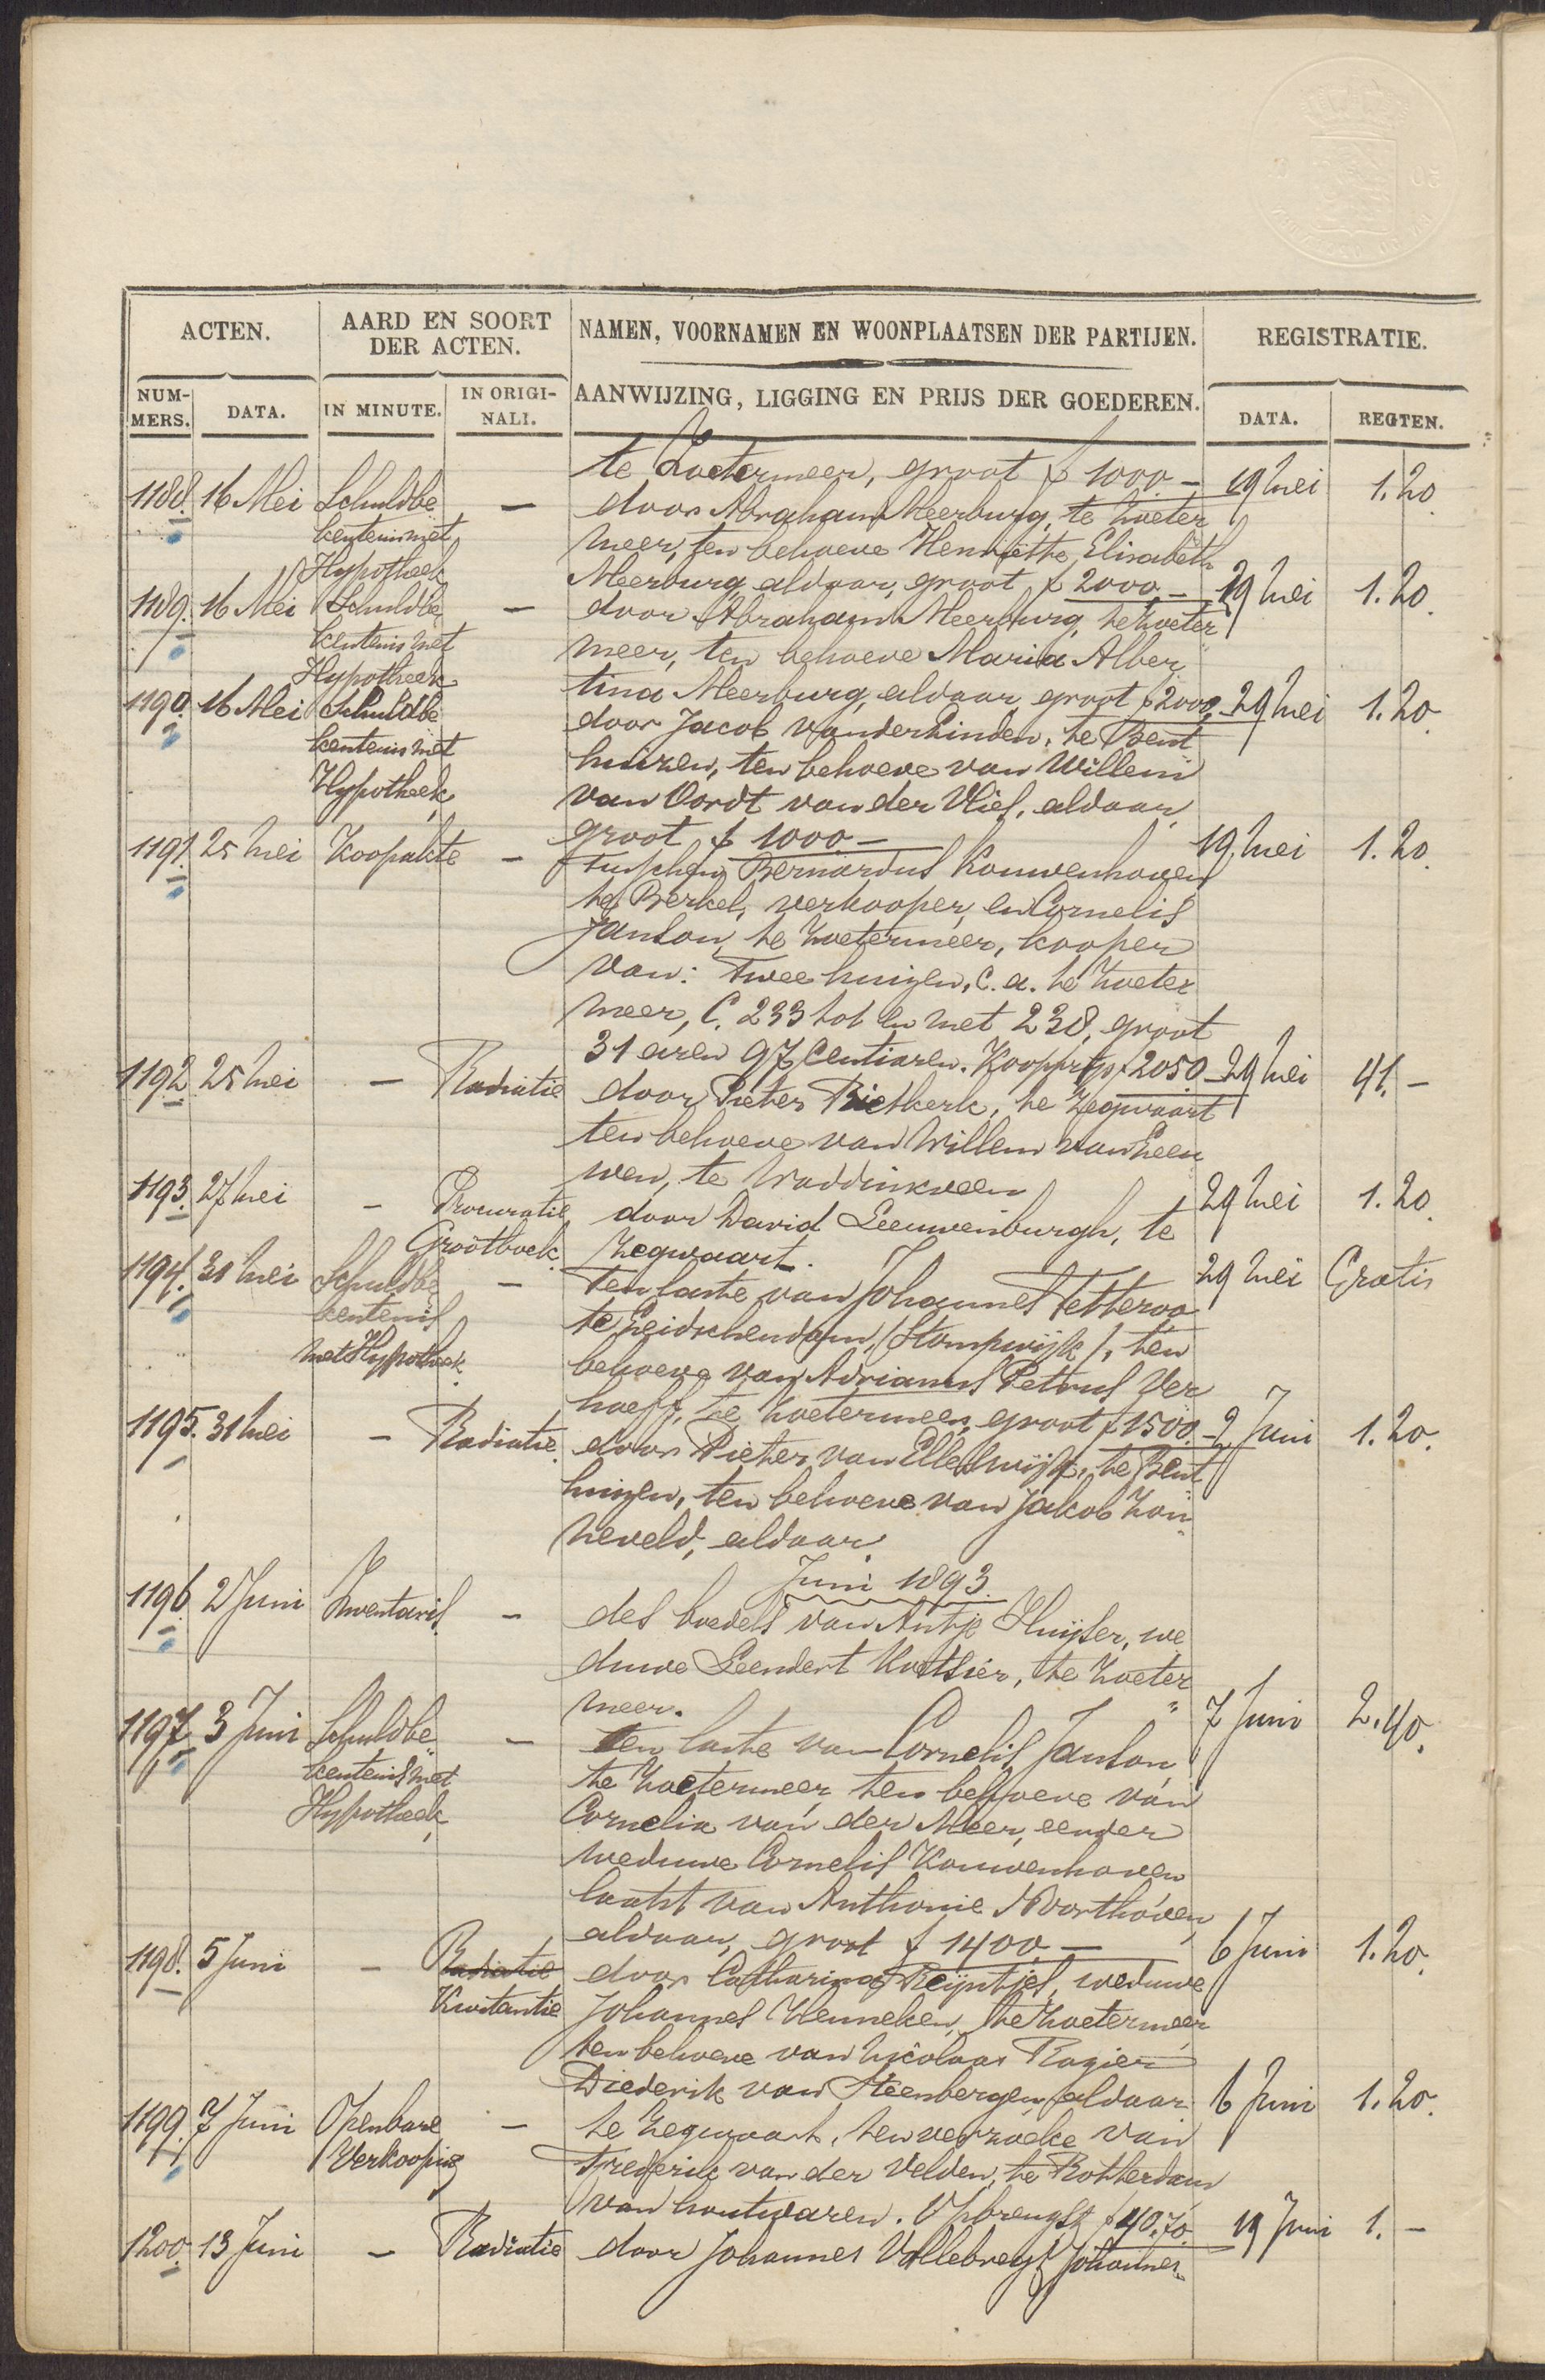 ACTEN.
AARD EN SOORT
DER ACTEN.
NAMEN, VOORNAMEN EN WOONPLAATSEN DER PARTIJEN.
REGISTRATIE.
NUM-
MERS.
DATA.
IN MINUTE.
IN ORIGI-
NALI.
AANWIJZING, LIGGING EN PRIJS DER GOEDEREN.
DATA.
REGTEN.
te Zoetermeer, groot f 1000.— 19 Mei 1.20
1188. 16 Mei Schuldbe — door Abraham Meerburg, te Zoeter
kentenis met meer, ten behoeve Henriëtthe Elisabeth
Hypotheek Meerburg, aldaar, groot f 2000.— 29 Mei 1.20.
1189. 16 Mei Schuldbe — door Abraham Meerburg, te Zoeter
kentenis met meer, ten behoeve Maria Alber
Hypotheek tina Meerburg, aldaar, groot f 2000.— 29 Mei 1.20.
1190. 16 Mei Schuldbe door Jacob van der Linden, te Bent
kentenis met huizen, ten behoeve van Willem
Hypotheek van Oordt van der Vlies, aldaar,
groot f 1000.— 19 Mei 1.20.
1191. 25 Mei Koopakte — tusschen Bernardus Kouwenhoven
te Berkel, verkooper, en Cornelis
Janson, te Zoetermeer, kooper
van: Twee huizen, c.a. te Zoeter
meer, C. 233 tot en met 238, groot
31 aren 97 Centiaren. Koopprijs f 2050 — 29 Mei 41.—
1192 25 Mei — Radiatie door Pieter Rietkerk, te Zegwaart
ten behoeve van Willem van Leeu
wen, te Waddinxveen 29 Mei 1.20.
1193. 27 Mei — Procuratie door David Leeuwenburgh, te
Grootboek. Zegwaart. 29 Mei Gratis
1194. 31 Mei Schuldbe — Ten laste van Johannes Tetteroo
kentenis te Leidschendam, (Stompwijk), ten
met Hypotheek. behoeve van Adrianus Petrus Ver
hoeff, te Zoetermeer, groot f 1500.— 2 Juni 1.20.
1195. 31 Mei — Radiatie. door Pieter van Elleswijk, te Bent
huizen, ten behoeve van Jakob Zon
neveld, aldaar.
Juni 1893.
1196. 2 Juni Inventaris — des boedels van Antje Huijser, we
duwe Leendert Kortsier, te Zoeter
meer. 7 Juni 2.40.
1197. 3 Juni Schuldbe — Ten laste van Cornelis Janson,
kentenis met te Zoetermeer, ten behoeve van
Hypotheek, Cornelia van der Meer, eerder
weduwe Cornelis Kouwenhoven
laatst van Anthonie Noorthoven,
aldaar, groot f 1400.— 6 Juni 1.20.
1198. 5 Juni — Radiatie door Catharina Reijntjes, weduwe
Kwitantie Johannes Henneken, te Zoetermeer,
ten behoeve van Nicolaas Rogier
Diederik van Steenbergen, aldaar. 6 Juni 1.20.
1199. 7 Juni Openbare — te Zegwaart, ten verzoeke van
Verkooping Frederik van der Velden, te Rotterdam
van houtwaren. Opbrengst f 40.70. 19 Juni 1.—
1200. 13 Juni — Radiatie door Johannes Vollebregt Johannes